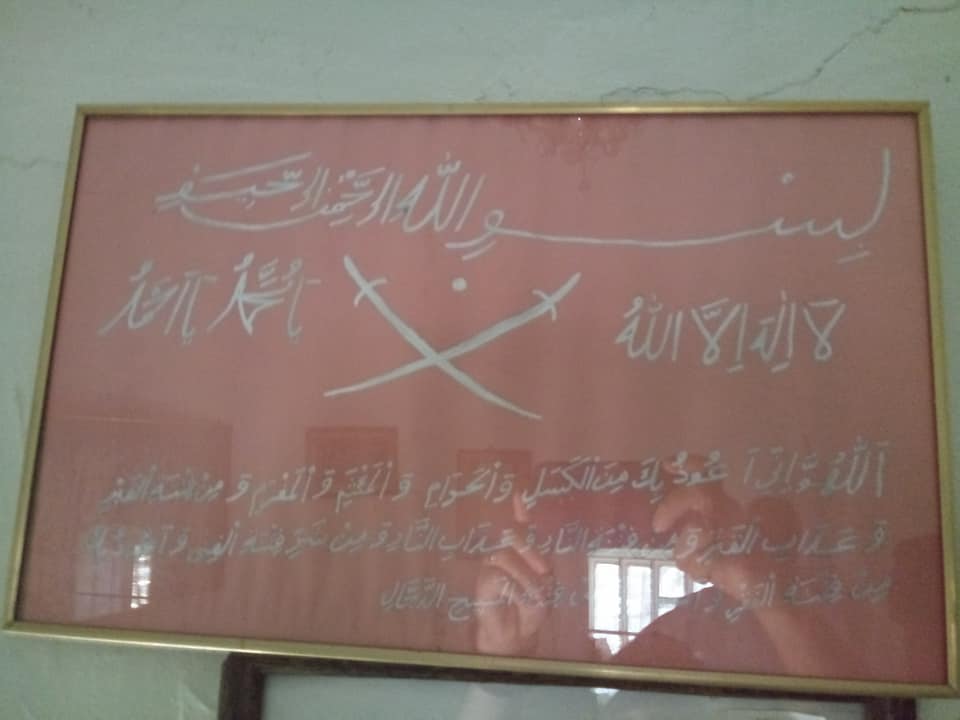 بسم الله الرحمن الرحيم
لا اله الا الله
يا محمد يا احمد
اللهم اني اعوذ بك من الكسل و الهرم و المغثم و المغرم و من فتنة القبر
و عذاب القبر و من فتنة النار و عذاب النار و من شر فتنة الغنى و اعوذ بك
من فتنة الفقر و فتنة المسيح الدجال